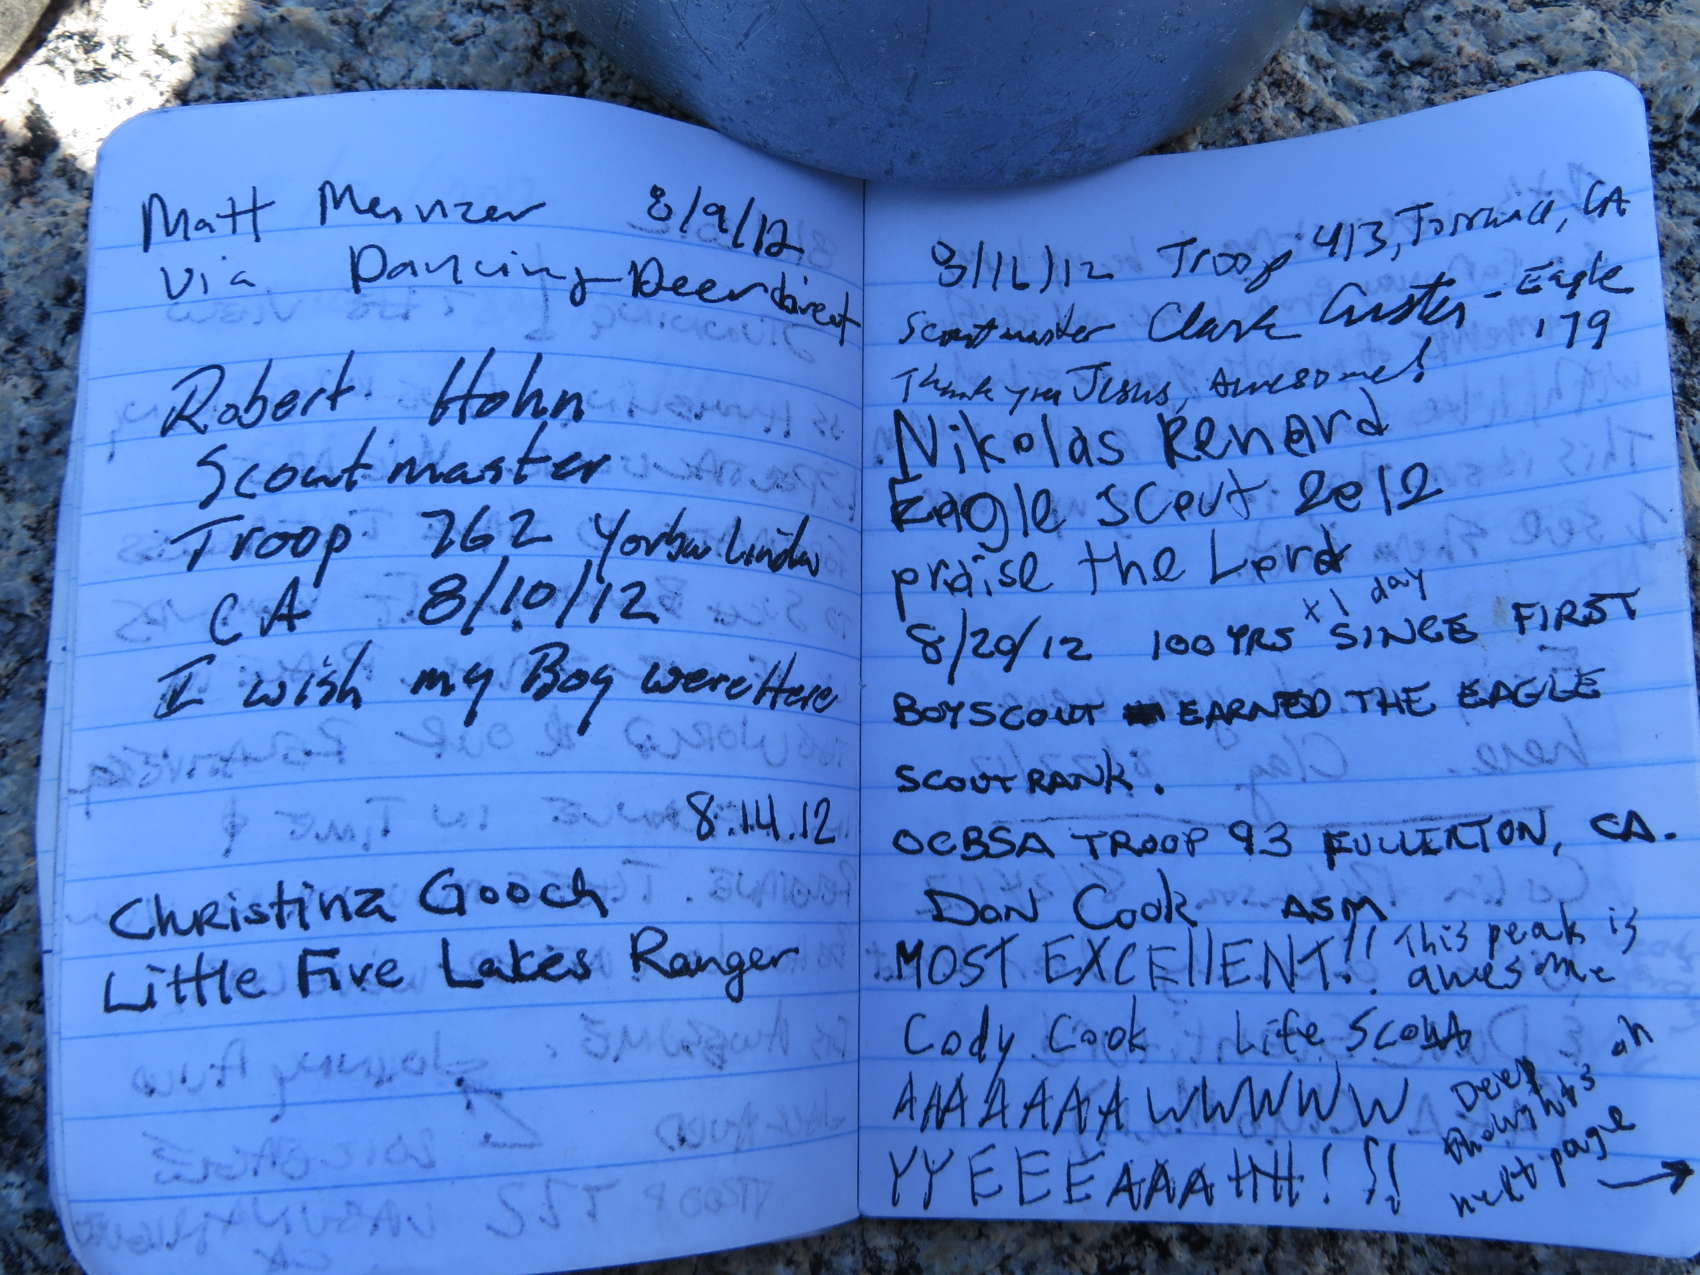 Matt Meinzer 8/9/12
via Dancing Deer direct
Robert Hohn
Scoutmaster
Troop 762 Yorba Linda
CA 8/10/12
I wish my Boy were Here
8.14.12
Christina Gooch
Little Five Lakes Ranger
8/16/12 Troop 413, Torrance, CA
Scoutmaster Clark Custer - Eagle
'79
Thank you Jesus, Awesome!
Nikolas Renard
Eagle Scout 2012
praise the Lord
x1 day
8/20/12 100 YRS SINCE FIRST
BOYSCOUT EARNED THE EAGLE
SCOUT RANK.
OCBSA TROOP 93 FULLERTON, CA.
DON COOK ASM
MOST EXCEllENT!! This peak is
awesome
Cody Cook Life Scout
AAAAAAAWWWWW
YYEEEAAAHH!!!
Deep
thoughts on
next page →